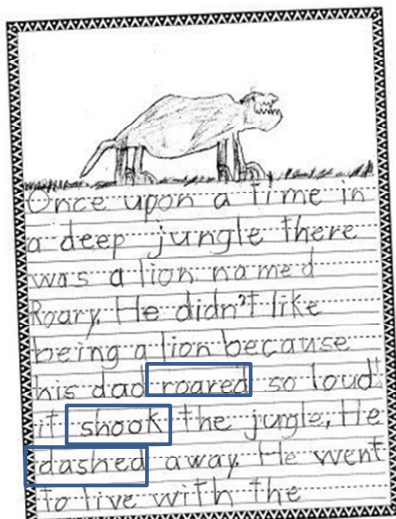 Once upon a time in
a deep jungle there
was a lion named
Roary. He didn't like
being a lion because
his dad roared so loud
it shook the jugle. He
dashed away. He went
to live with the